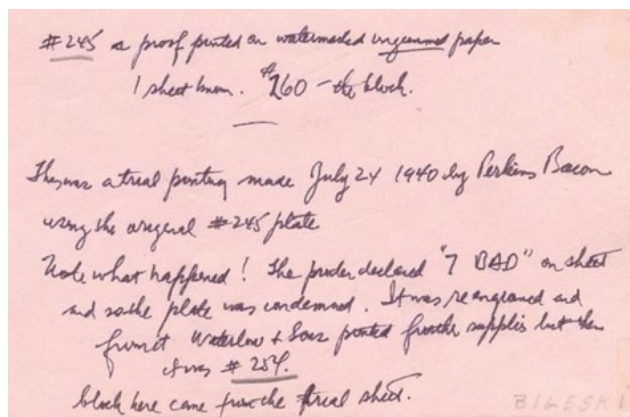 #245 a proof printed on watermarked ungummed paper
1 sheet known. $260 - the block.
This was a trial printing made July 24 1940 by Perkins Bacon
using the original #245 plate
Note what happened! The printer declared "7 BAD" on sheet
and so the plate was condemned. It was reengraved and
from it Waterlow & Sons printed further supplies but then
it was #254.
block here came from the trial sheet.
BILESKI